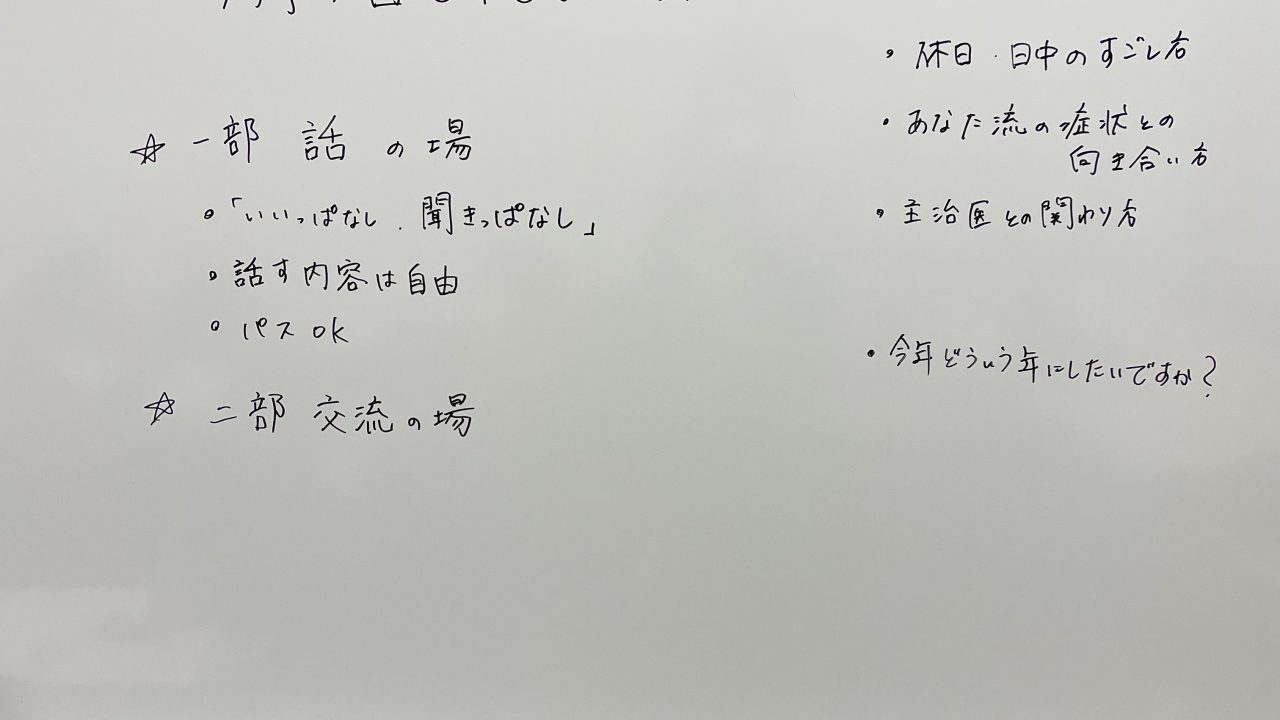 ☆ 一部 話の場
・「いいっぱなし．聞きっぱなし」
・話す内容は自由
・パスOK
☆ 二部 交流の場
・休日．日中のすごし方
・あなた流の症状との
向き合い方
・主治医との関わり方
・今年どういう年にしたいですか？